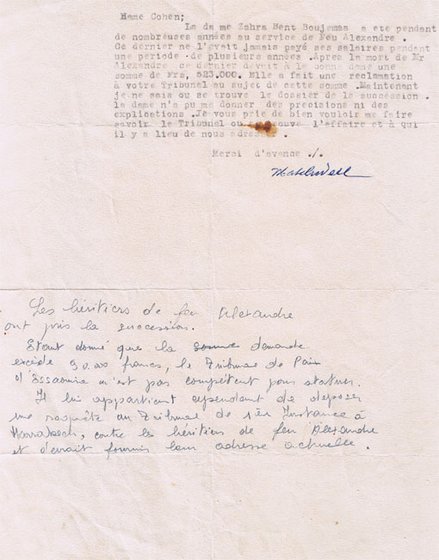 Mame Cohen;
La dame Zohra Bent Boujemaa a ete pendant
de nombreuses années au service de Feu Alexandre .
Ce dernier ne l'avait jamais payé ses salaires pendant
une periode de plusieurs années . Après la mort de Mr
Alexandre ce dernier devait à la bonne dame une
somme de Frs, 523.000. Elle a fait une reclamation
à votre Tribunal au sujet de cette somme. Maintenant
je ne sais ou se trouve le dossier de la succession .
la dame n'a pu me donner des precisions ni des
explications .Je vous prie de bien vouloir me faire
savoir le Tribunal ou trouve l'affaire et à qui
il y a lieu de nous
Merci d'avance ./.
Les héritiers de feu Alexandre
ont pris la succession.
Etant donné que la somme demandée
excède 90.000 francs, le Tribunal de Paix
d'Essaouira n'est pas compétent pour statuer.
Il lui appartient cependant de déposer
une requête au Tribunal de 1ère Instance à
Marrakech, contre les héritiers de feu Alexandre
et devrait fournir leur adresse actuelle .